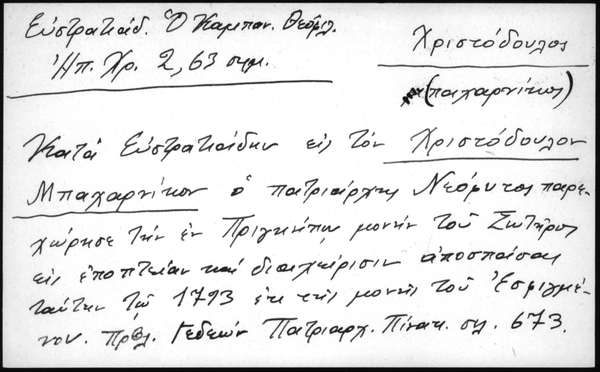 Εὐστρατιάδ. Ὁ Καμπαν. Θεόφιλ.
Ἠπ. Χρ. 2, 63 σημ.
Χριστόδουλος
(παχαρνίκος)
Κατὰ Εὐστρατιάδην εἰς τὸν Χριστόδουλον
Μπαχαρνίκον ὁ πατριάρχης Νεόφυτος παρε-
χώρησε τὴν ἐν Πριγκήπῳ μονὴν τοῦ Σωτῆρος
εἰς ἐποπτείαν καὶ διαχείρισιν ἀποσπάσας
ταύτην τῷ 1793 ἐκ τῆς μονῆς τοῦ Ἐσφιγμέ-
νου. Πρβλ. Γεδεὼν Πατριαρχ. Πίνακ. σελ. 673.